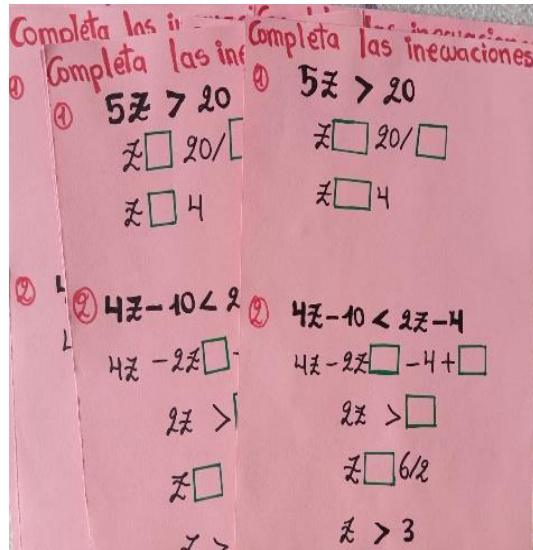 Completa las in
Completa las ine
①
①
5z > 20
z□ 20/□
z□ 4
②
4
4
②
4z - 10 < 2
4z - 2z□ -
2z > □
z□
z >
Completa las inecuaciones
①
5z > 20
z□ 20/□
z□ 4
②
4z - 10 < 2z - 4
4z - 2z□ - 4 + □
2z > □
z□ 6/2
z > 3